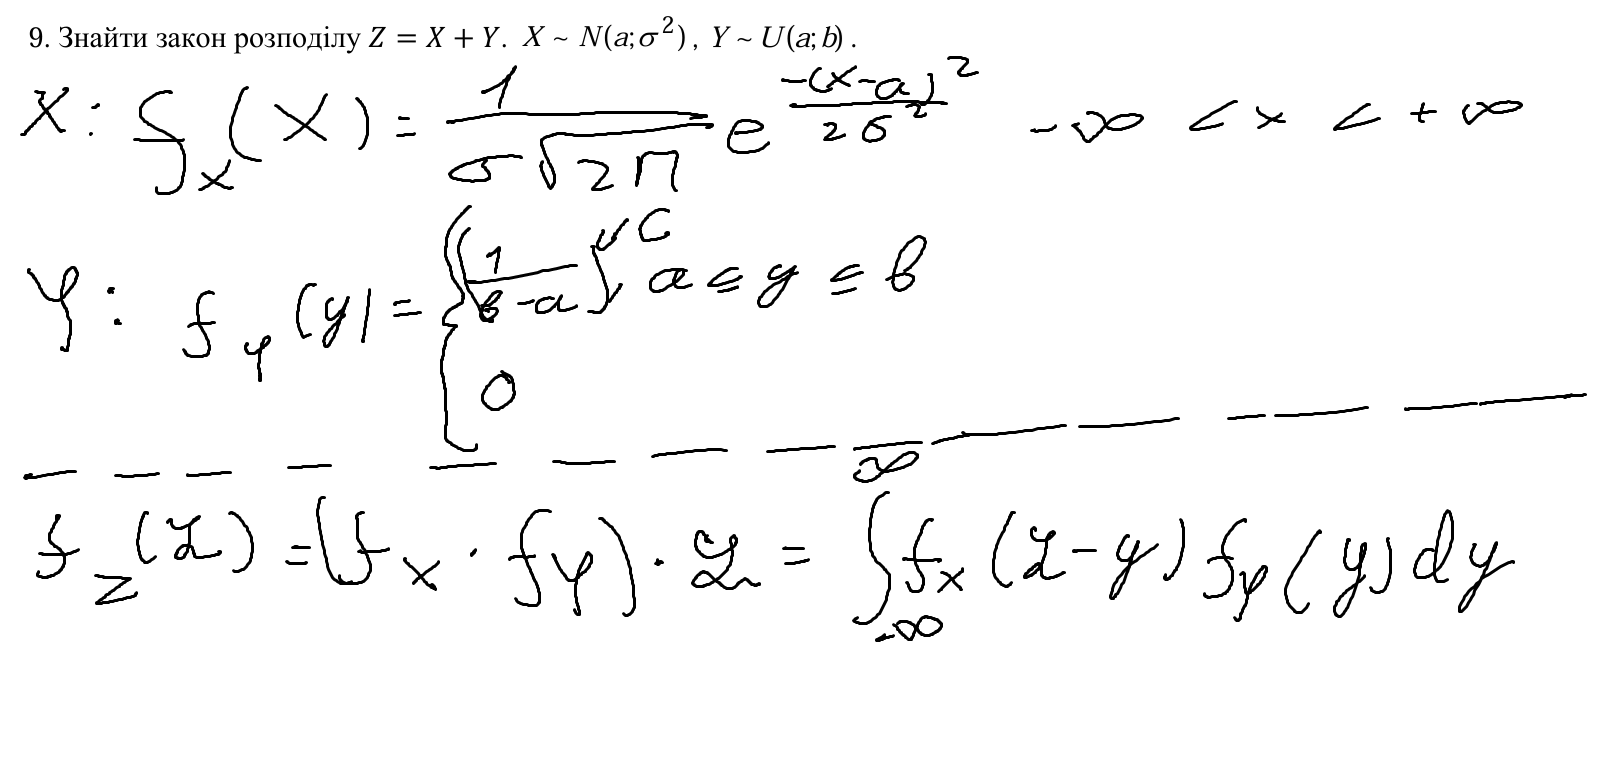 9. Знайти закон розподілу Z = X + Y. X ~ N(a; σ²), Y ~ U(a; b).
X: f_X(X) = 1/(σ√(2π)) e^(-(x-a)²/(2σ²)) -∞ < x < +∞
Y: f_Y(y) = { (1/(b-a)) C a ≤ y ≤ b
0
f_Z(z) = (f_X · f_Y) · z = ∫_{-∞}^{∞} f_X(z-y) f_Y(y) dy